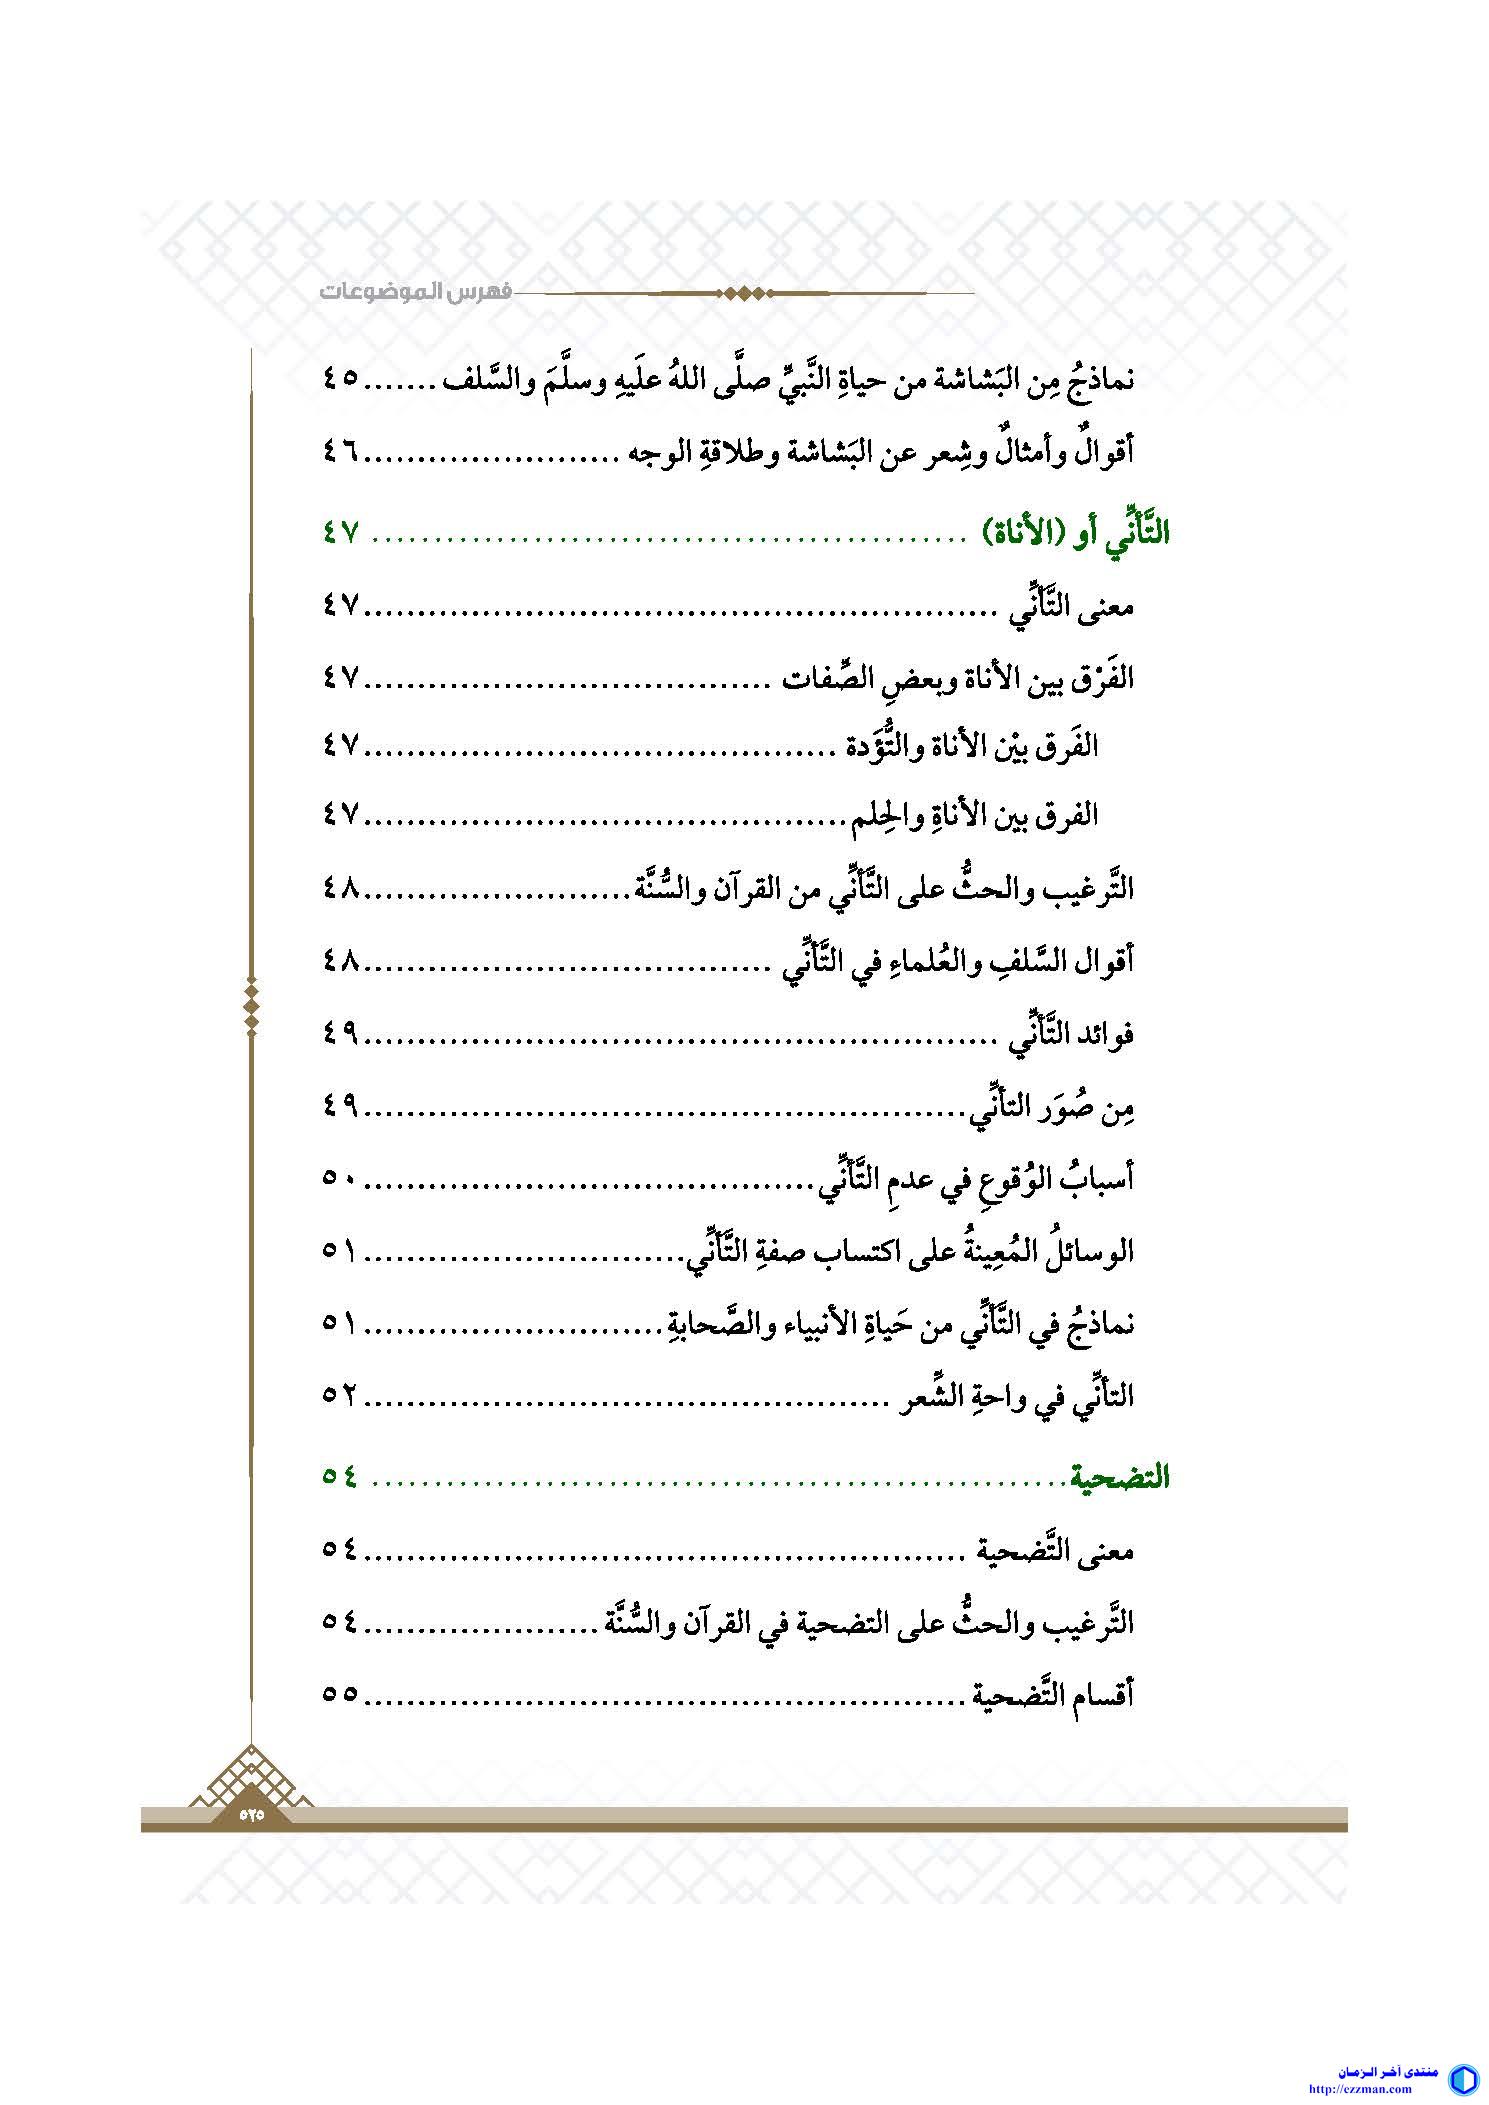 فهرس الموضوعات
نماذجُ مِن البَشاشة من حياةِ النَّبيِّ صلَّى اللهُ علَيهِ وسلَّمَ والسَّلف ....... ٤٥
أقوالٌ وأمثالٌ وشِعر عن البَشاشة وطلاقةِ الوجه ........................ ٤٦
التَّأنِّي أو (الأناة) ................................................ ٤٧
معنى التَّأنِّي ........................................................... ٤٧
الفَرْق بين الأناة وبعضِ الصِّفات ...................................... ٤٧
الفَرق بيْن الأناة والتُّؤَدة ............................................ ٤٧
الفرق بين الأناةِ والحِلم ............................................. ٤٧
التَّرغيب والحثُّ على التَّأنِّي من القرآن والسُّنَّة ......................... ٤٨
أقوال السَّلفِ والعُلماءِ في التَّأنِّي ...................................... ٤٨
فوائد التَّأنِّي ........................................................... ٤٩
مِن صُوَر التأنِّي ........................................................ ٤٩
أسبابُ الوُقوعِ في عدمِ التَّأنِّي .......................................... ٥٠
الوسائلُ المُعِينةُ على اكتساب صفةِ التَّأنِّي .............................. ٥١
نماذجُ في التَّأنِّي من حَياةِ الأنبياء والصَّحابةِ ............................ ٥١
التأنِّي في واحةِ الشِّعر ................................................. ٥٢
التضحية ........................................................ ٥٤
معنى التَّضحية ........................................................ ٥٤
التَّرغيب والحثُّ على التضحية في القرآن والسُّنَّة ...................... ٥٤
أقسام التَّضحية ........................................................ ٥٥
٥٢٥
منتدى آخر الزمان
http://ezzman.com